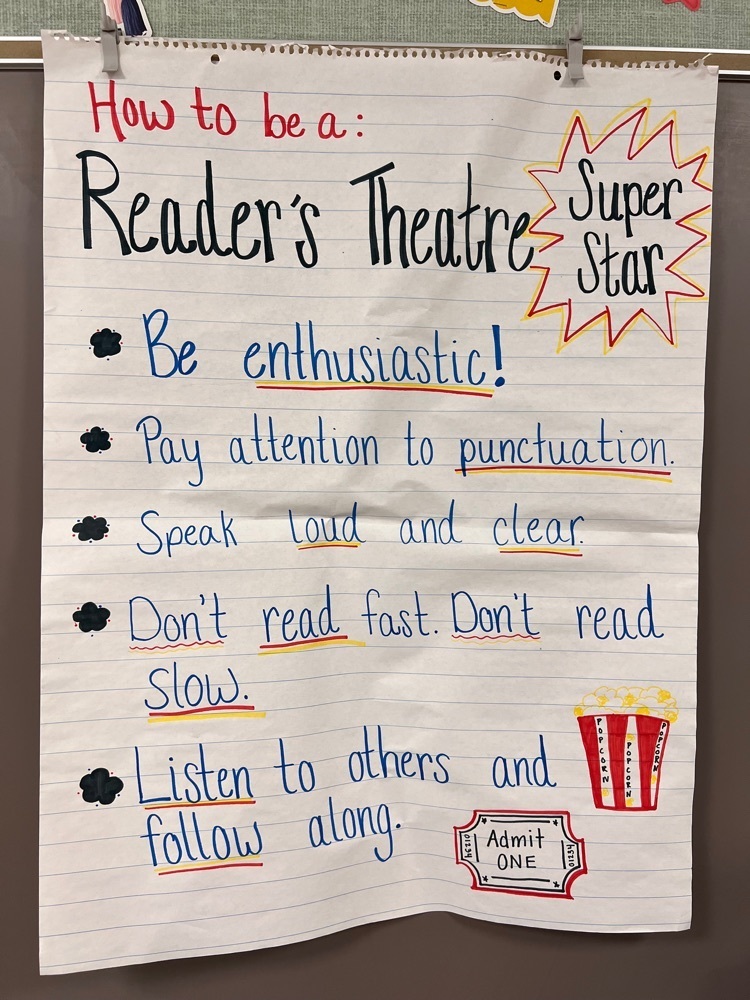 How to be a:
Reader's Theatre
Super
Star
Be enthusiastic!
Pay attention to punctuation.
Speak loud and clear.
Don't read fast. Don't read
slow.
Listen to others and
follow along.
POPCORN
POPCORN
POPCORN
Admit
ONE
01234